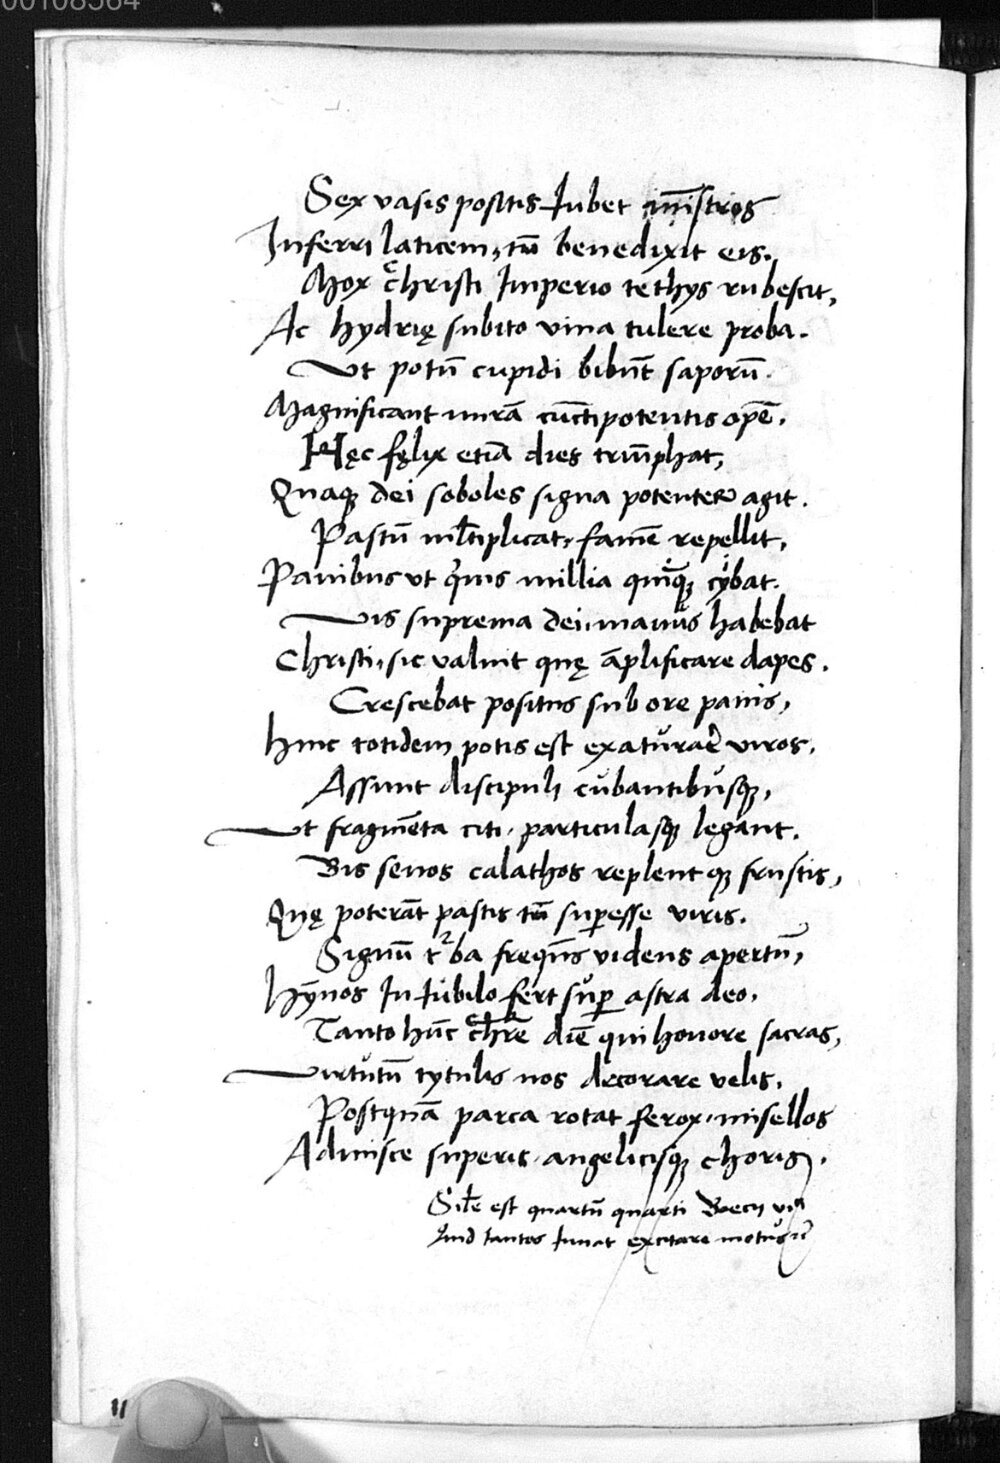 00108564
Sex vasis positis Iubet mīnistros
Inferri laticem, tū benedixit eis.
Mox christi Imperio tethys rubescit,
Ac hydrię subito vina tulere proba.
Ut potū cupidi bibūt saporū.
Magnificant mirā cūctipotentis opē.
Hęc fęlix etiā dies triūphat,
Quaqȝ dei soboles signa potenter agit.
Pastū mĺtiplicat, famē repellit,
Panibus ut quīis millia quīqȝ cybat.
Vis suprema dei, manus habebat
Christi, sic valuit quę āplificare dapes.
Crescebat positus sub ore panis,
Hinc totidem potis est exaturare viros.
Assunt discipuli cubantibusqȝ,
Ut fragmēta citi, particulasqȝ legant.
Bis senos calathos replentqȝ frustis,
Quę poterāt pastis tū supesse viris.
Signū turba frequēs videns apertū,
Hȳnos In Iubilo fert sup astra deo.
Tanto hūc chre diē qui honore sacras,
Virtutū tytulis nos decorare velis.
Postquā parca rotat ferox, misellos
Admisce superis, angelicisqȝ choris.
Sile est quartū quarti Boecij
Quid tantos Iuuat excitare motus
11